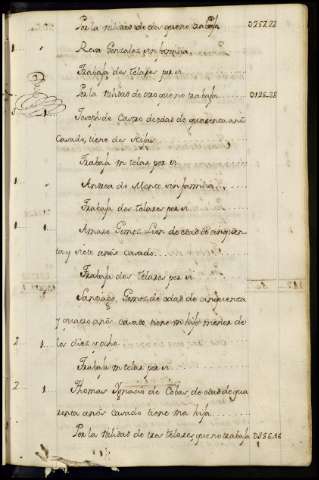 Por la mitad de dos que no trabaja 0252.22
1 Rosa Gonzalez sin familia
Trabaja dos telares por si
Por la mitad de otro que no trabaja 0126.28
Joseph de Castro de edad de quarenta añ
Casado, tiene dos Hijas
Trabaja un telar por si
1 Antta do Monte sin familia
Trabaja dos telares por si
1 1 Amaro Gomez Leon de edad de cinquen
ta y siete años casado
Trabaja dos telares por si
Santiago Gomez de edad de cinquenta
y quatro años casado tiene un hijo menor de
2 1 los diez y ocho
Trabaja un telar por si
2 1 Thomas Ignacio de Cobas de edad de qua
renta años casado tiene una hija
Por la mitad de tres telares que no trabaja